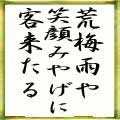 荒梅雨や
笑顔みやげに
客来たる